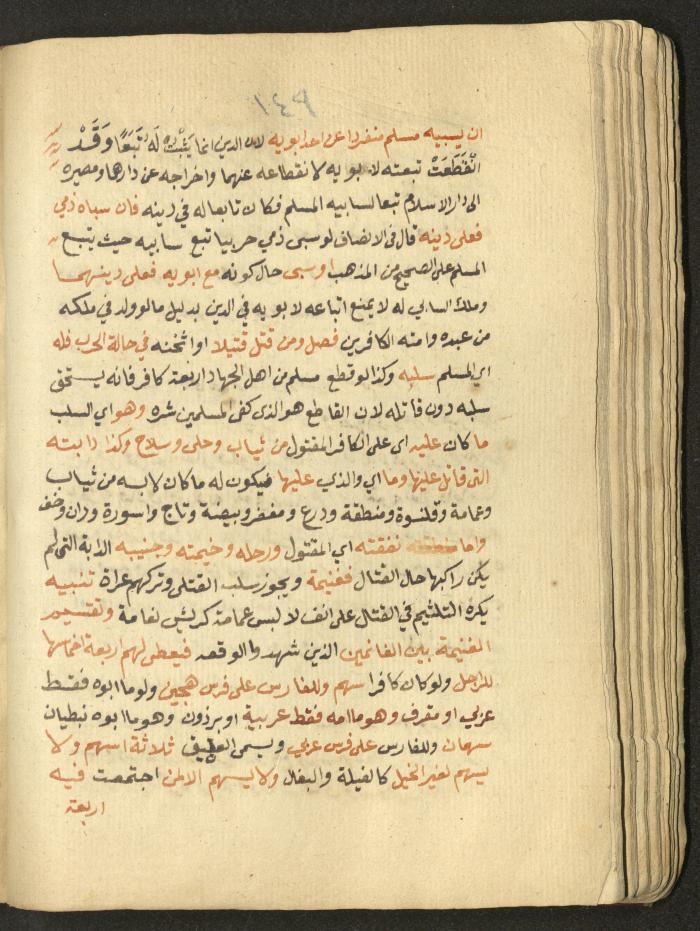 ١٤٩
ان يسبيه مسلم منفردا عن احد ابويه لان الدين انما يثبت له تبعا وَقَدْ
انْقَطَعَتْ تبعته لابويه لانقطاعه عنهما واخراجه عن دارهما ومصيره
الى دار الاسلام تبعا لسابيه المسلم فكان تابعا له في دينه فان سباه ذمي
فعلى دينه قال في الانصاف لو سبى ذمي حربيا تبع سابيه حيث يتبع
المسلم على الصحيح من المذهب او سبى حال كونه مع ابويه فعلى دينهما
وملك السابي له لا يمنع اتباعه لابويه في الدين بدليل ما لو ولد في ملكه
من عبده وامته الكافرين فصل ومن قتل قتيلا او اثخنه في حالة الحرب فله
اي المسلم سلبه وكذا لو قطع مسلم من اهل الجهاد اربعة كافر فانه يستحق
سلبه دون قاتله لان القاطع هو الذي كفى المسلمين شره وهو اي السلب
ما كان عليه اي على الكافر المقتول من ثياب وحلى وسلاح وكذا دابته
التي قاتل عليها وما اي والذي عليها فيكون له ما كان لابسه من ثياب
وعمامة وقلنسوة ومنطقة ودرع ومغفر وبيضة وتاج واسورة وران وخف
واما نفقته اي المقتول ورحله وخيمته وجنيبه الدابة التي لم
يكن راكبها حال القتال فغنيمة ويجوز سلب القتلى وتركهم عراة تنبيه
يكره التلثيم في القتال على انف لا لبس عمامة كريش نعامة وتقتسم
الغنيمة بين الغانمين الذين شهدوا الوقعه فيعطى لهم اربعة اخماسها
للراجل ولو كان كافرا سهم وللفارس على فرس هجين ولو ما ابوه فقط
عربي او مقرف وهو ما امه فقط عربية او برذون وهو ما ابوه نبطيان
سهمان وللفارس على فرس عربي ويسمى العتيق ثلاثة اسهم ولا
يسهم لغير الخيل كالفيلة والبغال ولا يسهم الا لمن اجتمعت فيه
اربعة